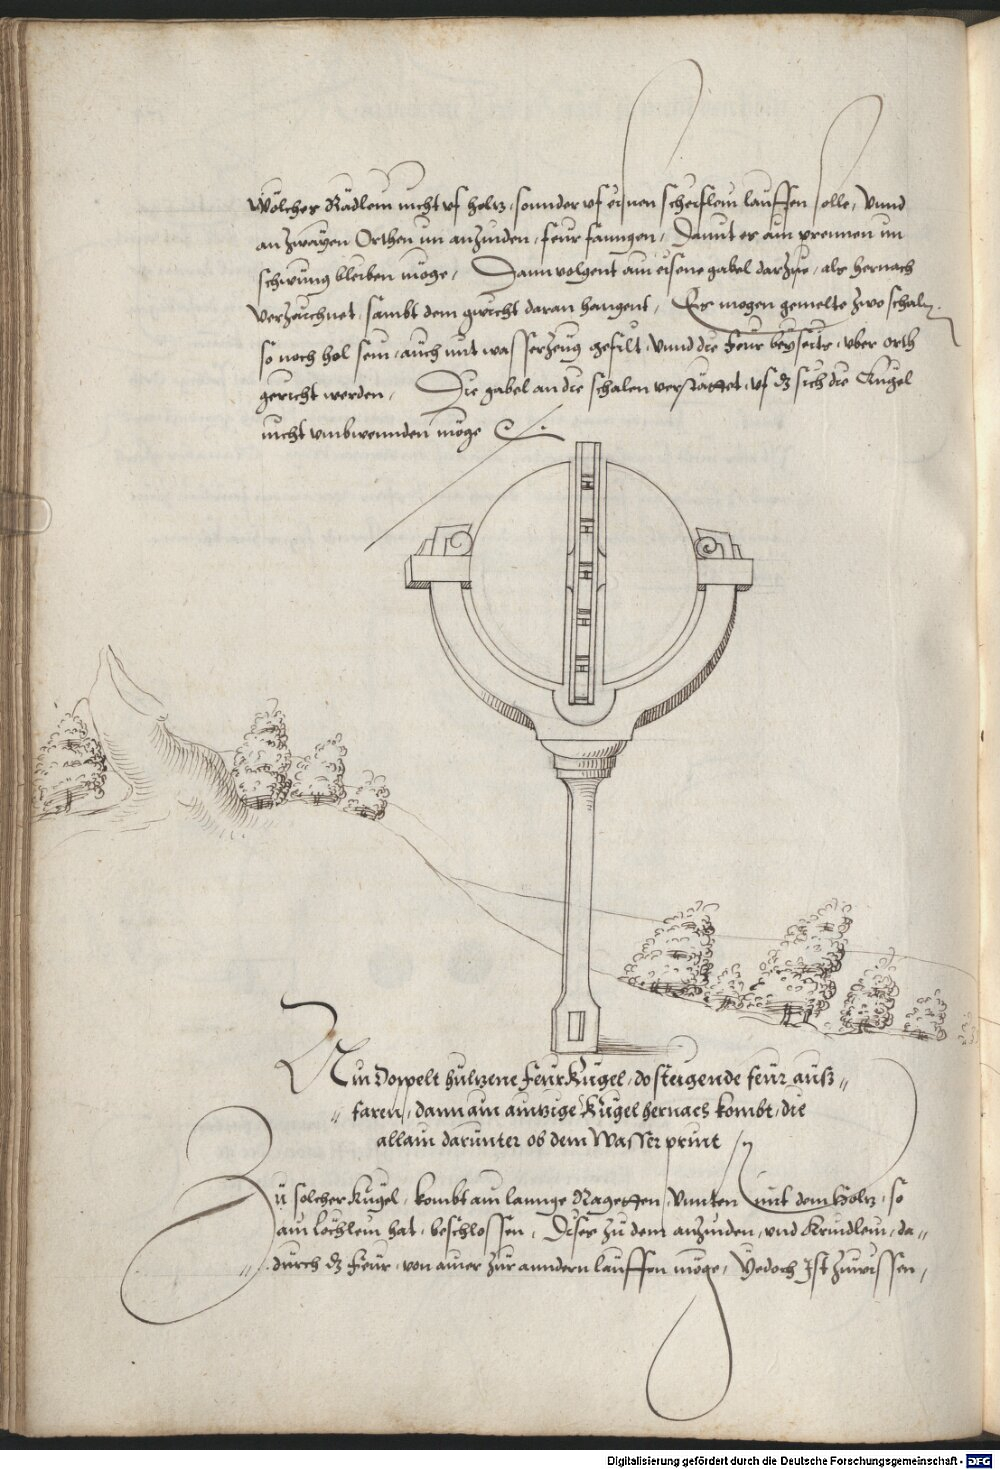 Wölches Rädlein nicht vf holtz, sonnder vf eisnen scheiflein lauffen solle, Vnnd
an zwayen Orthen un anzinden, feur fanngen, Damit es am prennen un
schwung bleiben möge, Dann volgent ain eisene gabel darzue, als hernach
verzeichnet, sambt dem gwicht daran hangent, Es mogen gemelte zwo schaln,
so noch hol sein, auch mit wasserzeug gefilt, vnnd die Feur beyseits, vber orth
gericht werden, Die gabel an die schalen verstättet, vf dz sich die Kugel
nicht vmbwennden möge
Ain doppelt hultzene FeurKugel, do steigende feur auß„
„ faren, dann ain aintzige Kugel hernach kombt, die
allain darunter ob dem Wasser print
Zu solcher Kugel, kombt ain lannge Ragetten, vnnten mit dem Holtz, so
ain löchlein hat, beschlossen, Dises zu dem anzinden, vnd Krindlein, da„
„ durch dz Feur, von ainer zur anndern lauffen möge, Yedoch Ist zuwissen,
Digitalisierung gefördert durch die Deutsche Forschungsgemeinschaft - DFG